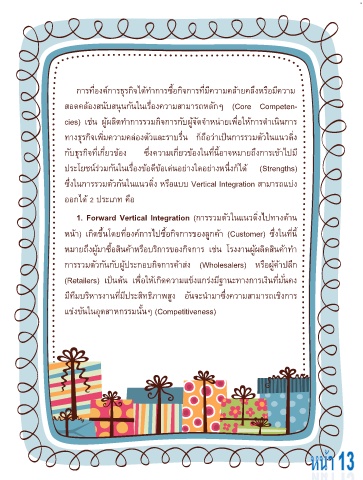 การที่องค์การธุรกิจได้ทำการซื้อกิจการที่มีความคล้ายคลึงหรือมีความ
สอดคล้องสนับสนุนกันในเรื่องความสามารถหลักๆ (Core Competen-
cies) เช่น ผู้ผลิตทำการรวมกิจการกับผู้จัดจำหน่ายเพื่อให้การดำเนินการ
ทางธุรกิจเพิ่มความคล่องตัวและราบรื่น ก็ถือว่าเป็นการรวมตัวในแนวดิ่ง
กับธุรกิจที่เกี่ยวข้อง ซึ่งความเกี่ยวข้องในที่นี้อาจหมายถึงการเข้าไปมี
ประโยชน์ร่วมกันในเรื่องข้อดีข้อเด่นอย่างใดอย่างหนึ่งก็ได้ (Strengths)
ซึ่งในการรวมตัวกันในแนวดิ่ง หรือแบบ Vertical Integration สามารถแบ่ง
ออกได้ 2 ประเภท คือ
1. Forward Vertical Integration (การรวมตัวในแนวดิ่งไปทางด้าน
หน้า) เกิดขึ้นโดยที่องค์การไปซื้อกิจการของลูกค้า (Customer) ซึ่งในที่นี้
หมายถึงผู้มาซื้อสินค้าหรือบริการของกิจการ เช่น โรงงานผู้ผลิตสินค้าทำ
การรวมตัวกันกับผู้ประกอบกิจการค้าส่ง (Wholesalers) หรือผู้ค้าปลีก
(Retailers) เป็นต้น เพื่อให้เกิดความแข็งแกร่งมีฐานะทางการเงินที่มั่นคง
มีทีมบริหารงานที่มีประสิทธิภาพสูง อันจะนำมาซึ่งความสามารถเชิงการ
แข่งขันในอุตสาหกรรมนั้นๆ (Competitiveness)
หน้า 13